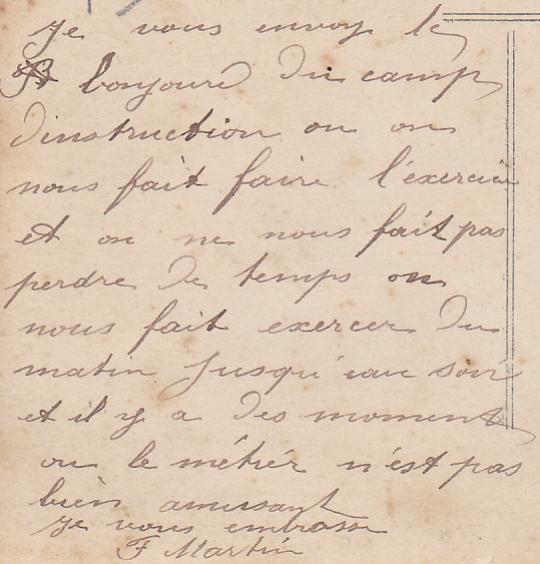 Je vous envoy le
bonjours du camp
dinstruction ou on
nous fait faire l'exercice
et on ne nous fait pas
perdre de temps on
nous fait exercer du
matin jusqu'eau soir
et il y a des moments
ou le métiér n'est pas
bien amusant
je vous embrasse
F Martin